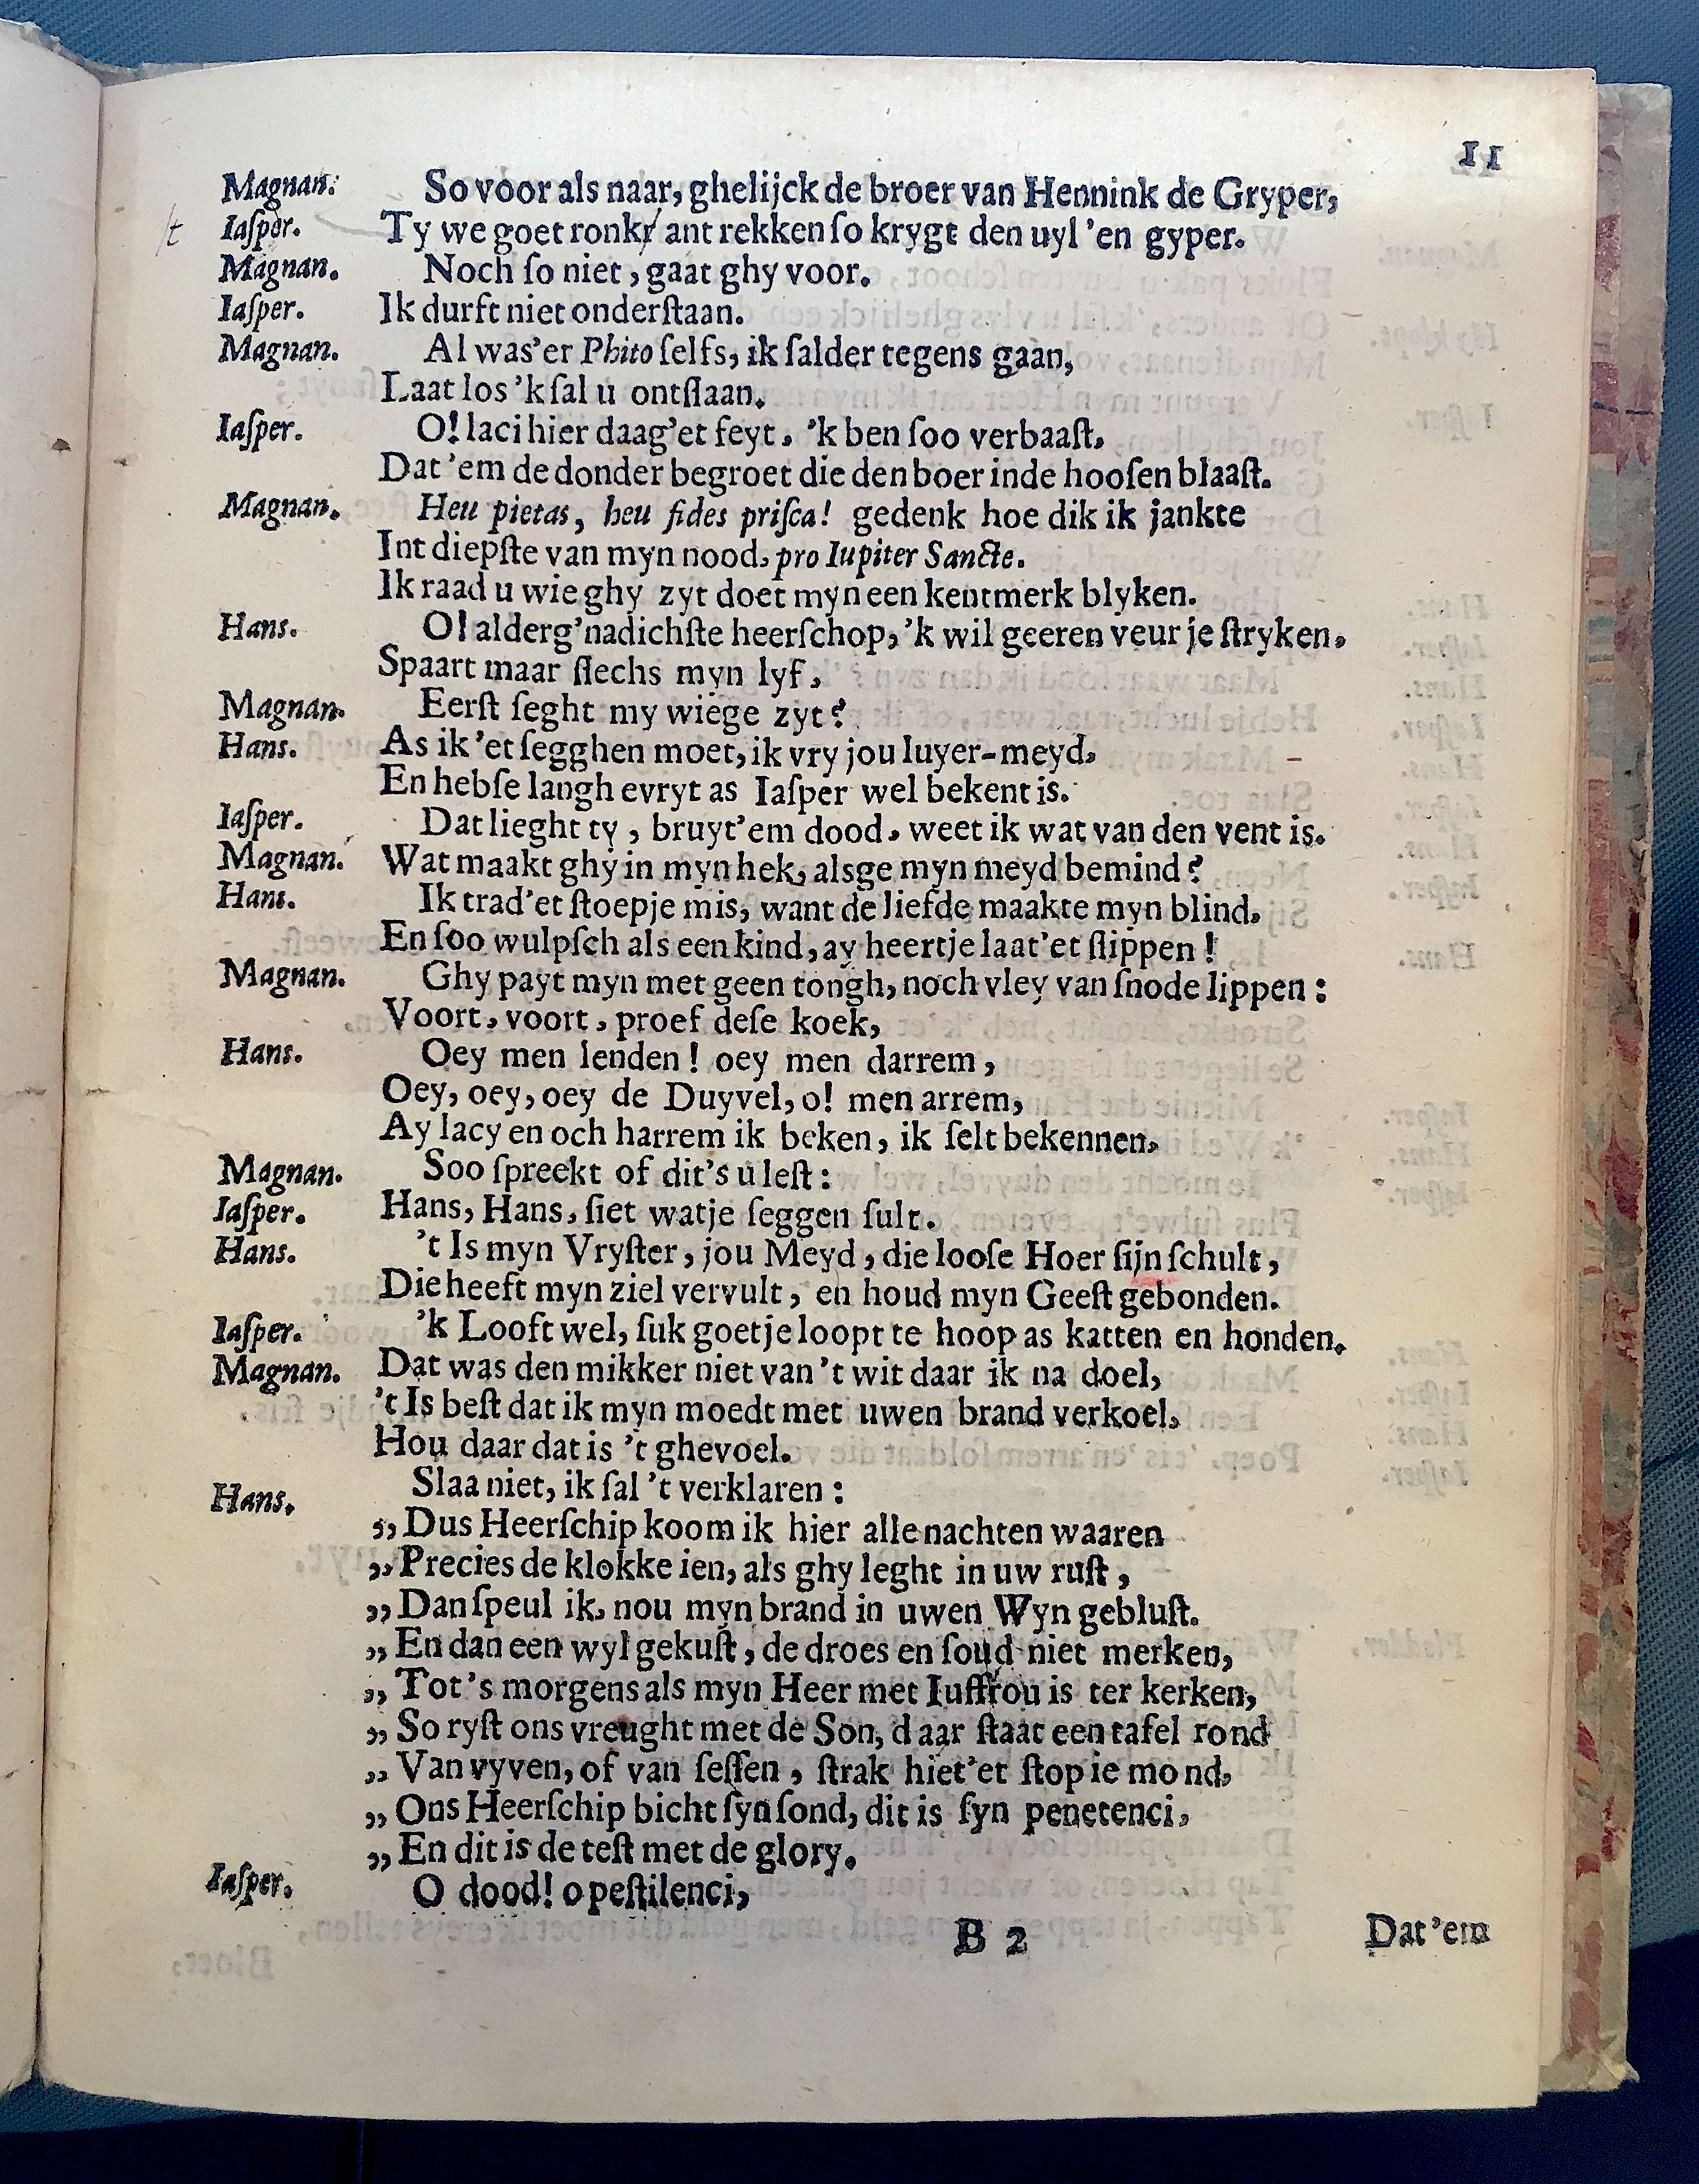 11
Magnan. So voor als naar, ghelijck de broer van Hennink de Gryper,
/t Iaſper. Ty we goet ronkr/ ant rekken ſo krygt den uyl 'en gyper.
Magnan. Noch ſo niet, gaat ghy voor.
Iaſper. Ik durft niet onderſtaan.
Magnan. Al was'er Phito ſelfs, ik ſalder tegens gaan,
Laat los 'k ſal u ontſlaan.
Iaſper. O! laci hier daag'et feyt, 'k ben ſoo verbaaſt,
Dat 'em de donder begroet die den boer inde hooſen blaaſt.
Magnan. Heu pietas, heu fides priſca! gedenk hoe dik ik jankte
Int diepſte van myn nood, pro Iupiter Sancte.
Ik raad u wie ghy zyt doet myn een kentmerk blyken.
Hans. O! alderg'nadichſte heerſchop, 'k wil geeren veur je ſtryken,
Spaart maar ſlechs myn lyf,
Magnan. Eerſt ſeght my wiege zyt?
Hans. As ik 'et ſegghen moet, ik vry jou luyer-meyd,
En hebſe langh evryt as Iaſper wel bekent is.
Iaſper. Dat lieght ty, bruyt'em dood, weet ik wat van den vent is.
Magnan. Wat maakt ghy in myn hek, alsge myn meyd bemind?
Hans. Ik trad'et ſtoepje mis, want de liefde maakte myn blind,
En ſoo wulpſch als een kind, ay heertje laat'et ſlippen!
Magnan. Ghy payt myn met geen tongh, noch vley van ſnode lippen:
Voort, voort, proef deſe koek,
Hans. Oey men lenden! oey men darrem,
Oey, oey, oey de Duyvel, o! men arrem,
Ay lacy en och harrem ik beken, ik ſelt bekennen,
Magnan. Soo ſpreekt of dit's u leſt:
Iaſper. Hans, Hans, ſiet watje ſeggen ſult.
Hans. 't Is myn Vryſter, jou Meyd, die looſe Hoer ſijn ſchult,
Die heeft myn ziel vervult, en houd myn Geeſt gebonden.
Iaſper. 'k Looft wel, ſuk goetje loopt te hoop as katten en honden,
Magnan. Dat was den mikker niet van 't wit daar ik na doel,
't Is beſt dat ik myn moedt met uwen brand verkoel,
Hou daar dat is 't ghevoel.
Hans. Slaa niet, ik ſal 't verklaren:
„Dus Heerſchip koom ik hier alle nachten waaren
„Precies de klokke ien, als ghy leght in uw ruſt,
„Dan ſpeul ik, nou myn brand in uwen Wyn gebluſt.
„En dan een wyl gekuſt, de droes en ſoud niet merken,
„Tot 's morgens als myn Heer met Iuffrou is ter kerken,
„So ryſt ons vreught met de Son, daar ſtaat een tafel rond
„Van vyven, of van ſeſſen, ſtrak hiet'et ſtop ie mond,
„Ons Heerſchip bicht ſyn ſond, dit is ſyn penetenci,
„En dit is de teſt met de glory.
Iaſper. O dood! o peſtilenci,
B 2 Dat 'em